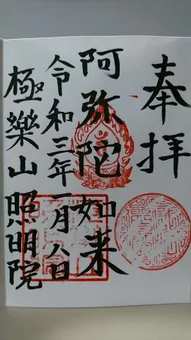 奉拝
阿弥陀如来
令和三年一月八日
極樂山昭明院